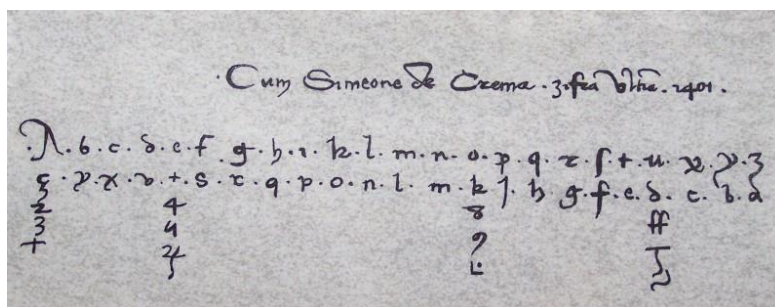 ·Cum Simeone de Crema·3· 1401·
·A·b·c·d·e·f·g·h·ı·k·l·m·n·o·p·q·r·ſ·t·u·x·y·z
z·y·x·v·t·s·r·q·p·o·n·l·m·k·j·h·g·f·e·d·c·b·a
2 4 8 ff
3 4
+